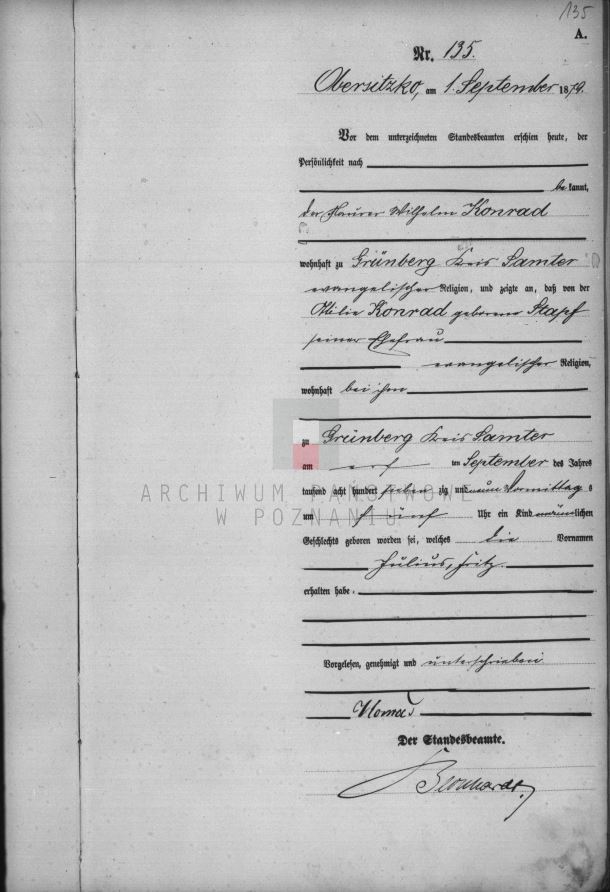 135
A.
Nr. 135.
Obersitzko, am 1. September 1879.
Vor dem unterzeichneten Standesbeamten erschien heute, der
Persönlichkeit nach
bekannt,
der Maurer Wilhelm Konrad
wohnhaft zu Grünberg Kreis Samter
evangelischer Religion, und zeigte an, daß von der
Konrad geborene Stapf
seiner Ehefrau
evangelischer Religion,
wohnhaft bei ihm
zu Grünberg Kreis Samter
am ersten September des Jahres
tausend acht hundert siebenzig und neun Vormittags
um fünf Uhr ein Kind männlichen
Geschlechts geboren worden sei, welches die Vornamen
Julius, Fritz
erhalten habe.
Vorgelesen, genehmigt und unterschrieben
Der Standesbeamte.
ARCHIWUM PAŃSTWOWE
W POZNANIU